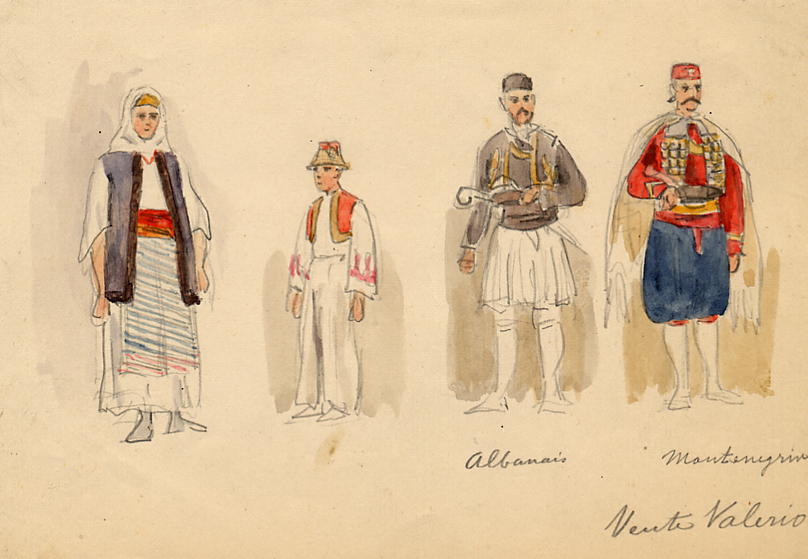 Albanais
Montenegrin
Vente Valerio